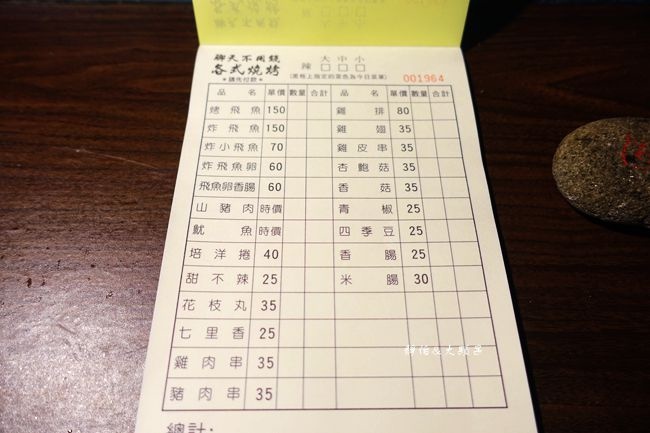 聊天不用錢
各式燒烤
★請先付款★
辣 大□ 中□ 小□
(黑格上指定的菜色為今日菜單)
001964
品名 單價 數量 合計 品名 單價 數量 合計
烤飛魚 150 雞排 80
炸飛魚 150 雞翅 35
炸小飛魚 70 雞皮串 35
炸飛魚卵 60 杏鮑菇 35
飛魚卵香腸 60 香菇 35
山豬肉 時價 青椒 25
魷魚 時價 四季豆 25
培洋捲 40 香腸 25
甜不辣 25 米腸 30
花枝丸 35
七里香 25
雞肉串 35
豬肉串 35
總計: